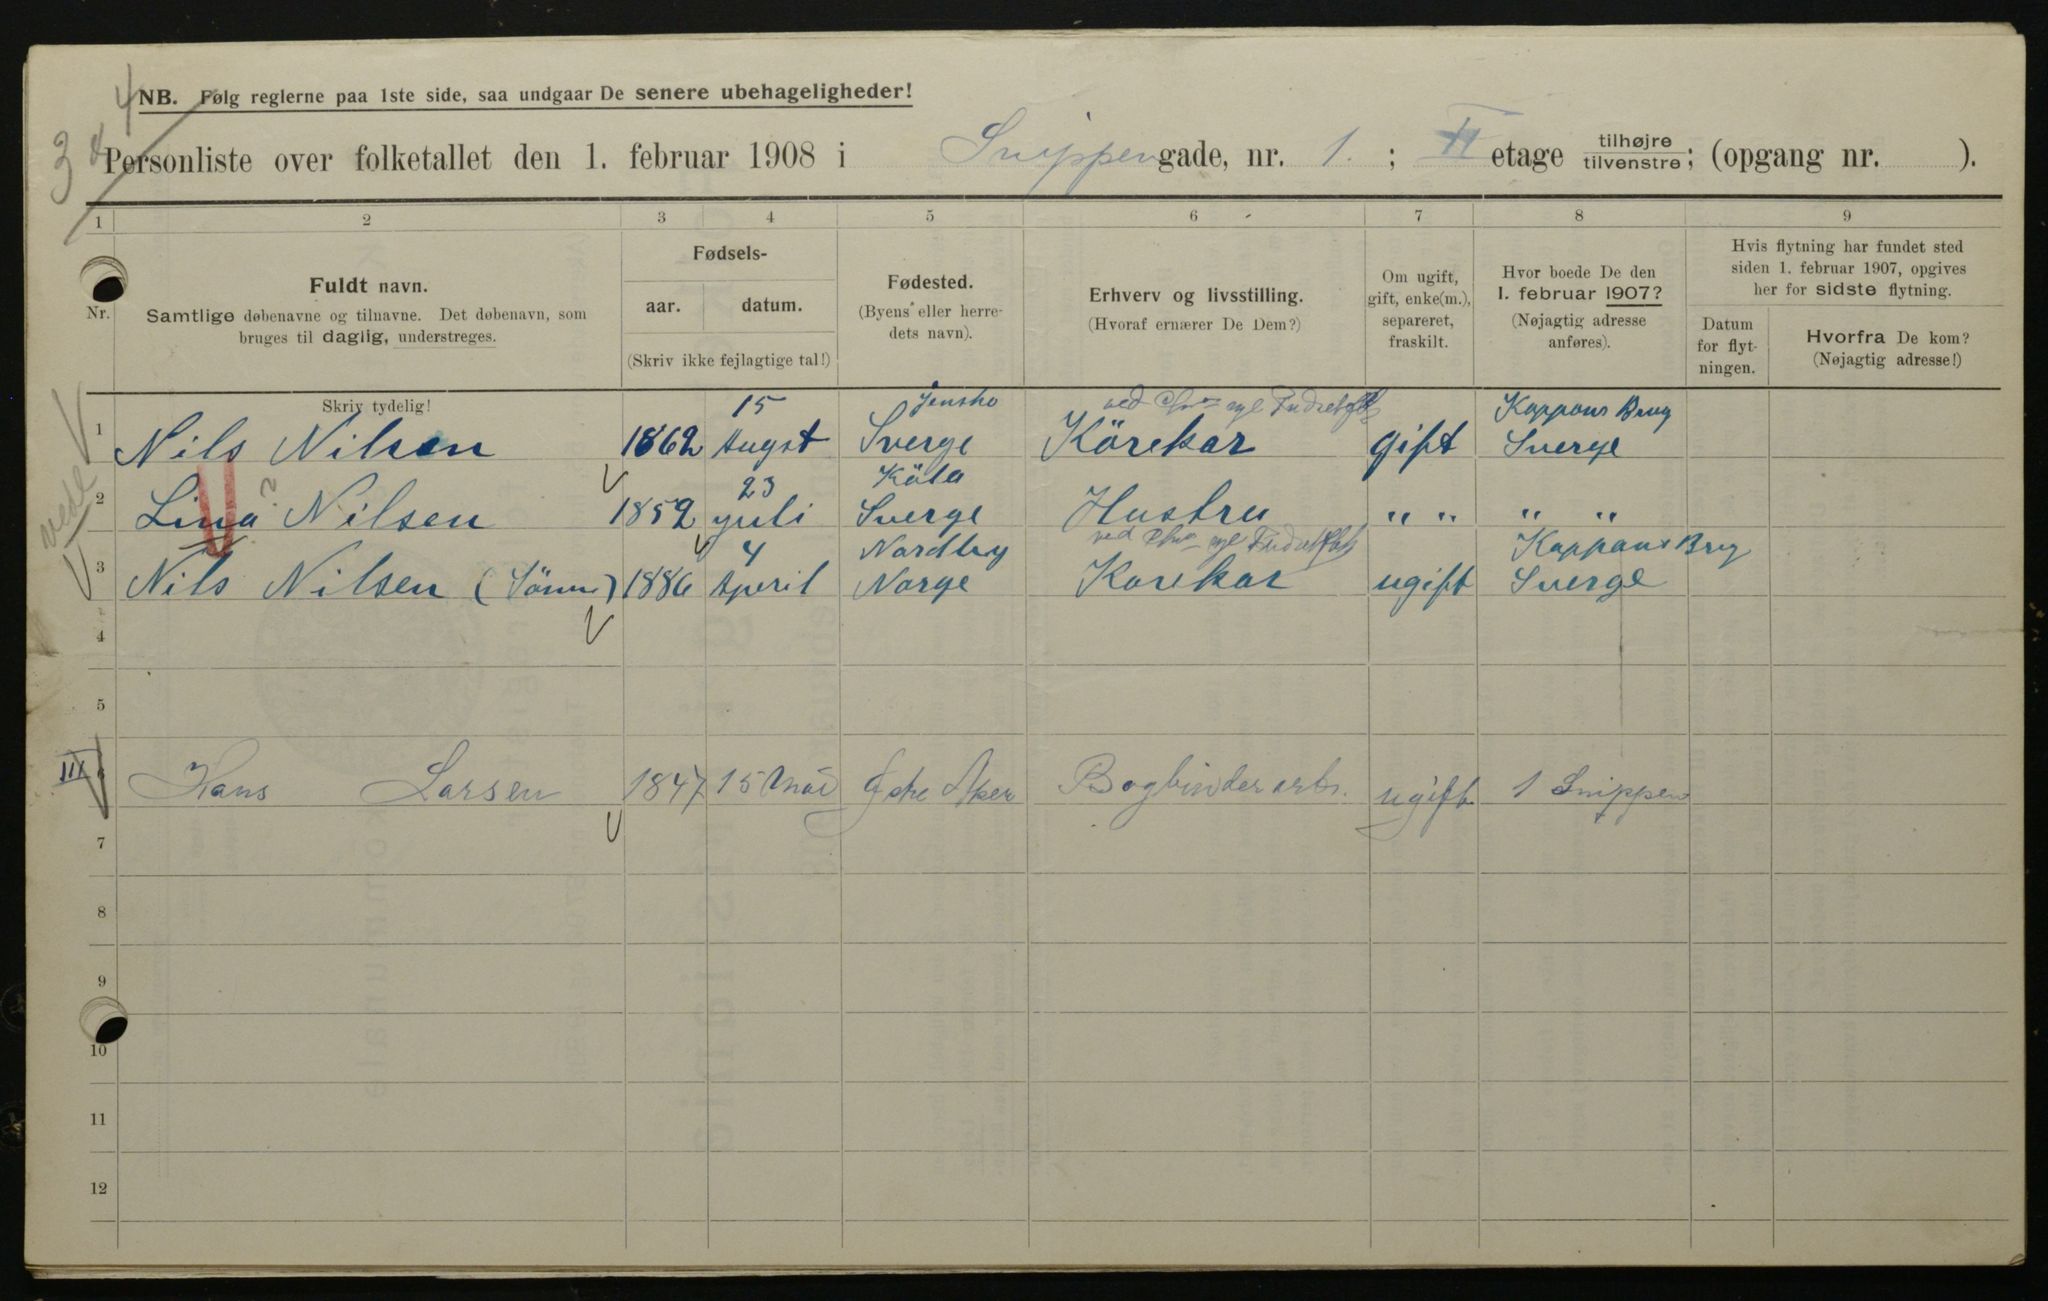 4
NB. Følg reglerne paa 1ste side, saa undgaar De senere ubehageligheder!
3
Personliste over folketallet den 1. februar 1908 i Snippengade, nr. 1. ; II etage tilhøjre/tilvenstre; (opgang nr. ).
1 2 3 4 5 6 7 8 9
Nr.
Fuldt navn.
Samtlige døbenavne og tilnavne. Det døbenavn, som
bruges til daglig, understreges.
Skriv tydelig!
Fødsels-
aar. datum.
(Skriv ikke fejlagtige tal!)
Fødested.
(Byens eller herre-
dets navn).
Erhverv og livsstilling.
(Hvoraf ernærer De Dem?)
Om ugift,
gift, enke(m.),
separeret,
fraskilt.
Hvor boede De den
1. februar 1907?
(Nøjagtig adresse
anføres).
Hvis flytning har fundet sted
siden 1. februar 1907, opgives
her for sidste flytning.
Datum
for flyt-
ningen.
Hvorfra De kom?
(Nøjagtig adresse!)
15 ved Kappans Brug
1 Nils Nilsen 1862 Augst Sverge Körekar gift Sverge
23 Köla
2 Lina ? Nilsen 1852 yuli Sverge Hustru " " " "
4 Nordby ved Kappans Brug
3 Nils Nilsen (Sönn) 1886 Aperil Norge Korekar ugift Sverge
4
5
III 6 Hans Larsen 1847 15 Mai Østre Aker Bogbinderarb. ugift 1 Snippen
7
8
9
10
11
12